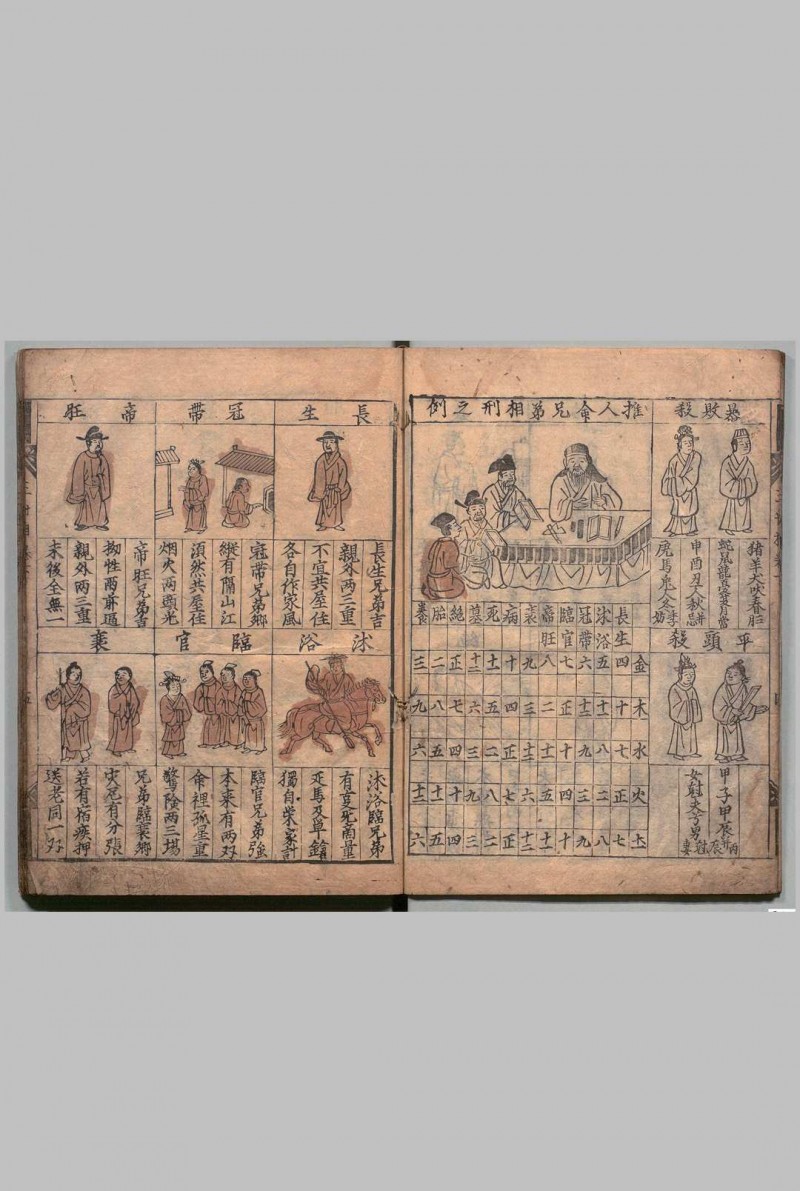 敗殺
申酉丑人秋
虎馬兔人冬
平頭殺
甲子甲辰并丙辰
推人命兄弟相刑之例
長生 沐浴 冠帶 臨官 帝旺 衰 病 死 墓 絕 胎 養
金 四 五 六 七 八 九 十 十一 十二 正 二 三
木 十 十一 十二 正 二 三 四 五 六 七 八 九
水 七 八 九 十 十一 十二 正 二 三 四 五 六
火 正 二 三 四 五 六 七 八 九 十 十一 十二
土 七 八 九 十 十一 十二 正 二 三 四 五 六
長生
長生兄弟吉
親外兩三重
不宜共屋住
各自作家風
冠帶
冠帶兄弟鄉
縱有隔山江
須然共屋住
烟火兩頭光
帝旺
帝旺兄弟吉
拗性兩前通
親外兩三重
末後全無一
沐浴
沐浴臨兄弟
有莫死商量
疋馬及單鎗
獨自柴家計
臨官
臨官兄弟強
本来有兩双
命裡孤星重
驚險兩三場
衰
兄弟臨衰鄉
兄有分張
若有宿疾押
送老同一双